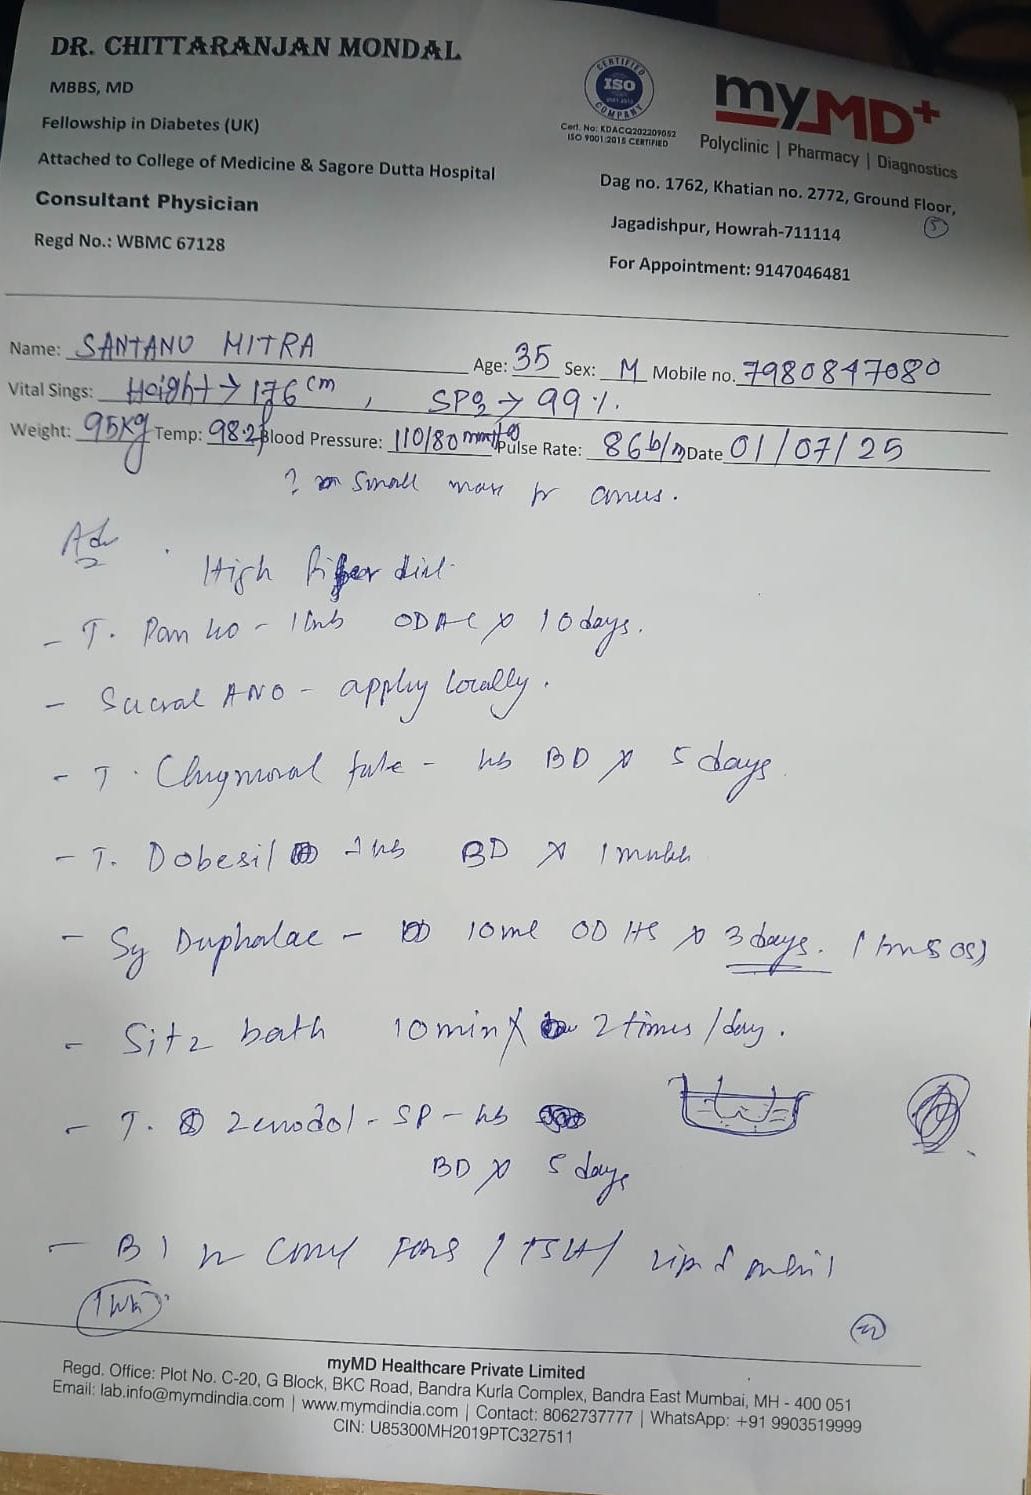 DR. CHITTARANJAN MONDAL
MBBS, MD
Fellowship in Diabetes (UK)
Attached to College of Medicine & Sagore Dutta Hospital
Consultant Physician
Regd No.: WBMC 67128
CERTIFIED
ISO
COMPANY
Cert. No: KDACQ202209052
ISO 9001:2015 CERTIFIED
myMD+
Polyclinic | Pharmacy | Diagnostics
Dag no. 1762, Khatian no. 2772, Ground Floor,
Jagadishpur, Howrah-711114
5
For Appointment: 9147046481
Name: SANTANU MITRA Age: 35 Sex: M Mobile no. 7980847080
Vital Sings: Height → 176 cm, SPO2 → 99%.
Weight: 95Kg Temp: 98.2F Blood Pressure: 110/80 mmHg Pulse Rate: 86b/m Date 01/07/25
? small mass anus.
Adv
High fiber diet
- T. Pan 40 - 1 tab ODAC x 10 days.
- Sucral ANO - apply locally.
- T. Chymoral forte - tab BD x 5 days
- T. Dobesil 1 tab BD x 1 month
- Sy Duphalac - 10ml OD HS x 3 days. SOS)
- Sitz bath 10 min x 2 times/day.
- T. Zerodol-SP - tab
BD x 5 days
- TSH/ lipid
myMD Healthcare Private Limited
Regd. Office: Plot No. C-20, G Block, BKC Road, Bandra Kurla Complex, Bandra East Mumbai, MH - 400 051
Email: lab.info@mymdindia.com | www.mymdindia.com | Contact: 8062737777 | WhatsApp: +91 9903519999
CIN: U85300MH2019PTC327511